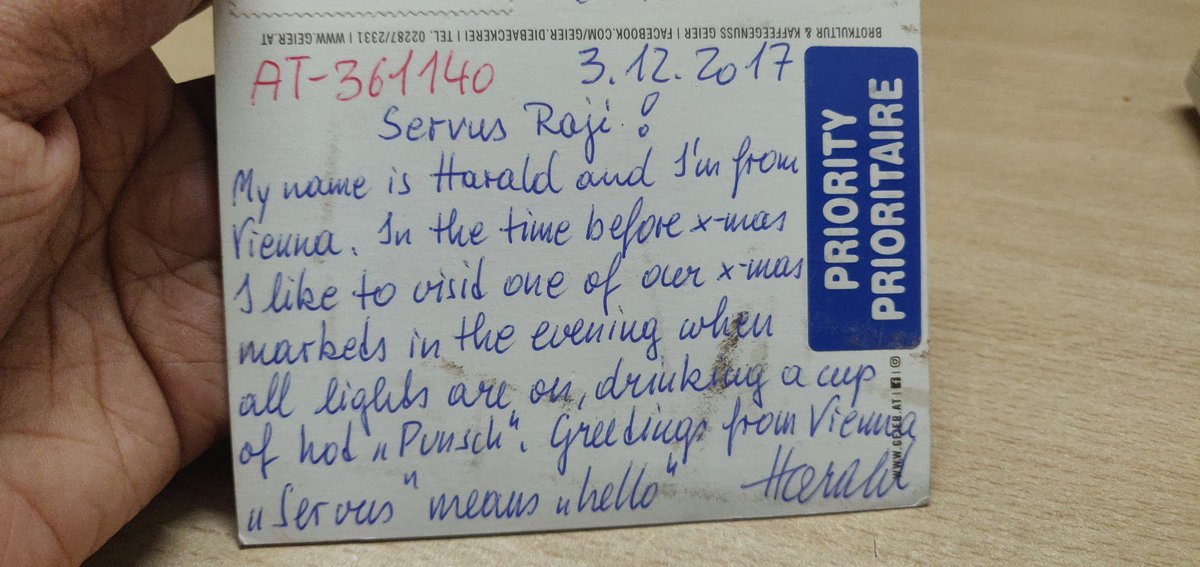 BROTKULTUR & KAFFEEGENUSS GEIER | FACEBOOK.COM/GEIER.DIEBAECKEREI | TEL. 02287/2331 | WWW.GEIER.AT
AT-361140 3.12.2017
Servus Raji!
My name is Harald and I'm from
Vienna. In the time before x-mas
I like to visit one of our x-mas
markets in the evening when
all lights are on, drinking a cup
of hot „Punsch“. Greetings from Vienna
„Servus“ means „hello“ Harald
PRIORITY
PRIORITAIRE
WWW.GEIER.AT